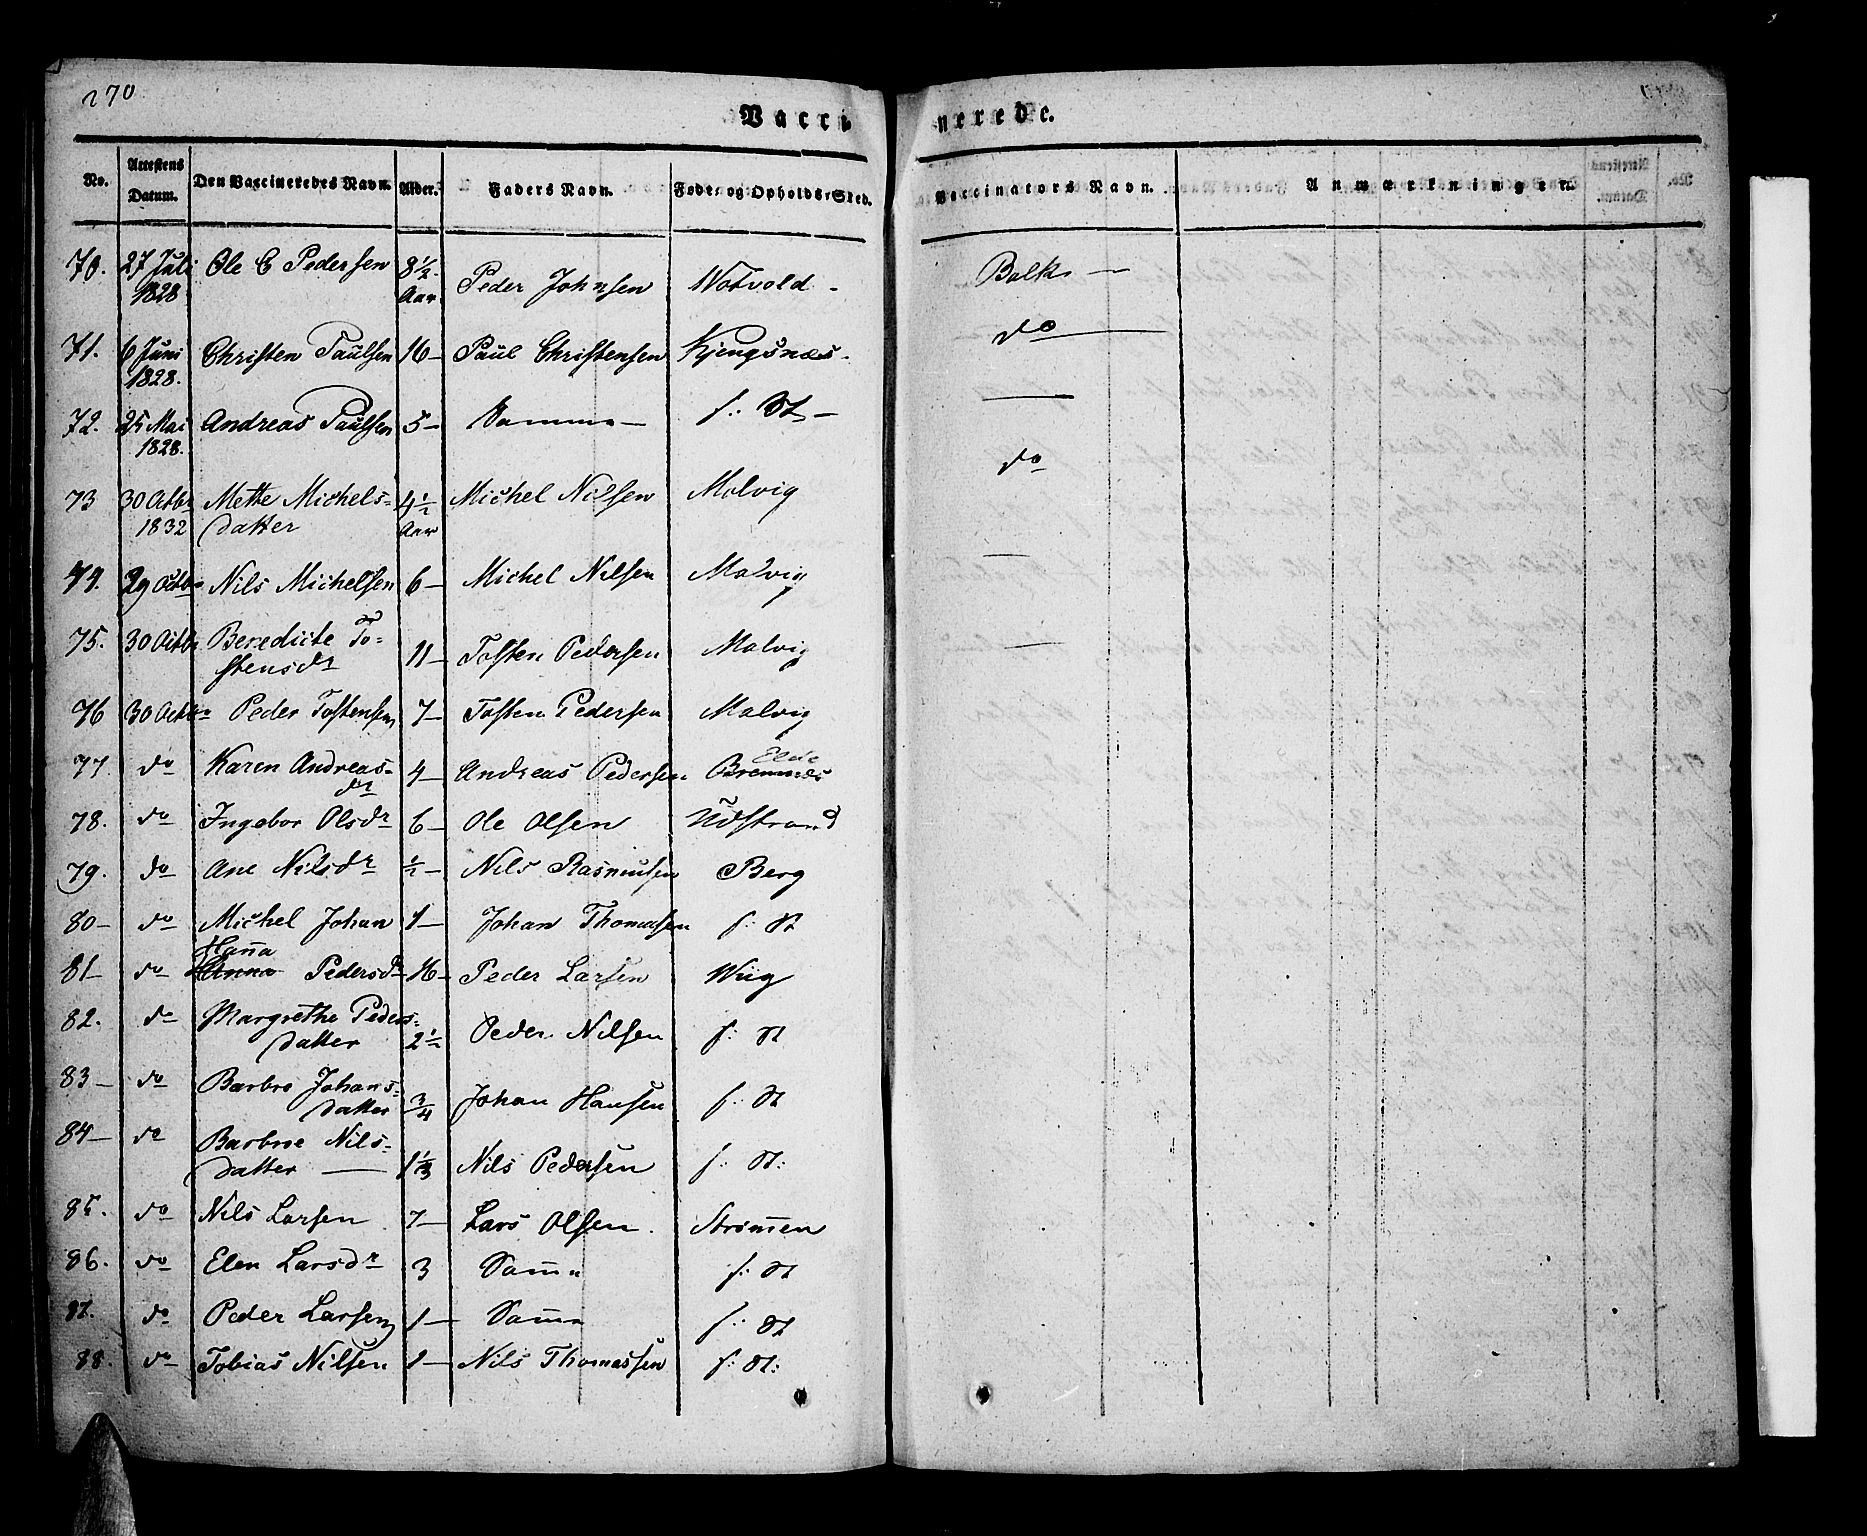 270
Vaccinerede.
No. Attestens Datum. Den Vaccineredes Navn. Alder. Faders Navn. Føde- og Opholds-Sted. Vaccinators Navn. Anmærkninger.
70. 27 Juli 1828 Ole C Pedersen 8 1/2 Aar Peder Johnsen Votvold - Balke —
71. 6 Juni 1828. Christen Paulsen 16 — Paul Christensen Kjengsnæs - do —
72. 25 Mai 1828. Andreas Paulsen 5 — Samme — f: St — —
73 30 Octbr 1832 Mette Michels= datter 4 1/2 Aar Michel Nilsen Malvig do
74. 29 Octbr Nils Michelsen 6 — Michel Nilsen Malvig —
75. 30 Octbr Beredicte To= stensdr 11 — Tosten Pedersen Malvig —
76 30 Octbr Peder Tostensen 7 — Tosten Pedersen Malvig
77. do Karen Andreas= dr 4 — Andreas Pedersen Bremnes
78. do Ingebor Olsdr 6 — Ole Olsen Udstrand
79. do Ane Nilsdr 1/2 — Nils Rasmusen Berg
80 — do Michel Johan 1 — Johan Thomassen f: St
Hanna
81 — do Anna Pedersdr 16 — Peder Larsen Wiig
82. do Margrethe Peders= datter 2 1/2 Peder Nilsen f: St
83 — do Barbro Johans= datter 3/4 Johan Hansen f: St
84 — do Barbroe Nils= datter — 1 1/3 Nils Pedersen f: St:
85. do Nils Larsen 7 — Lars Olsen. Strømen
86. do Elen Larsdr 3 Samme f: St
87. do Peder Larsen 1 — Samme f: St
88. do Tobias Nilsen 1 — Nils Thomassen f: St: